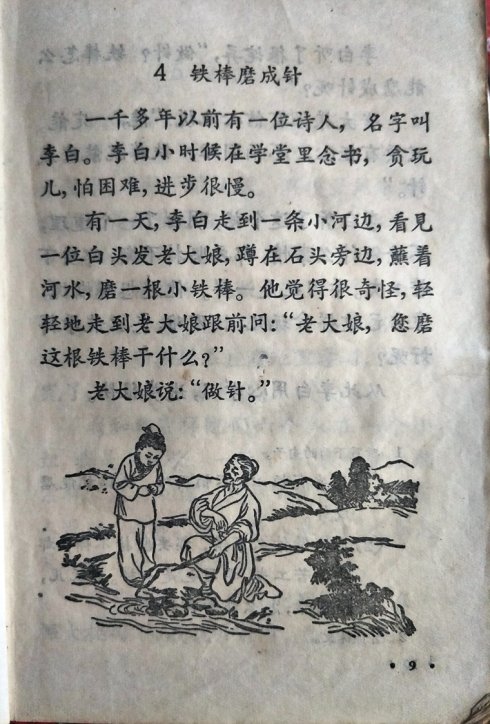 4 铁棒磨成针
一千多年以前有一位诗人，名字叫
李白。李白小时候在学堂里念书，贪玩
儿，怕困难，进步很慢。
有一天，李白走到一条小河边，看见
一位白头发老大娘，蹲在石头旁边，蘸着
河水，磨一根小铁棒。他觉得很奇怪，轻
轻地走到老大娘跟前问：“老大娘，您磨
这根铁棒干什么？”
老大娘说：“做针。”
· 9 ·